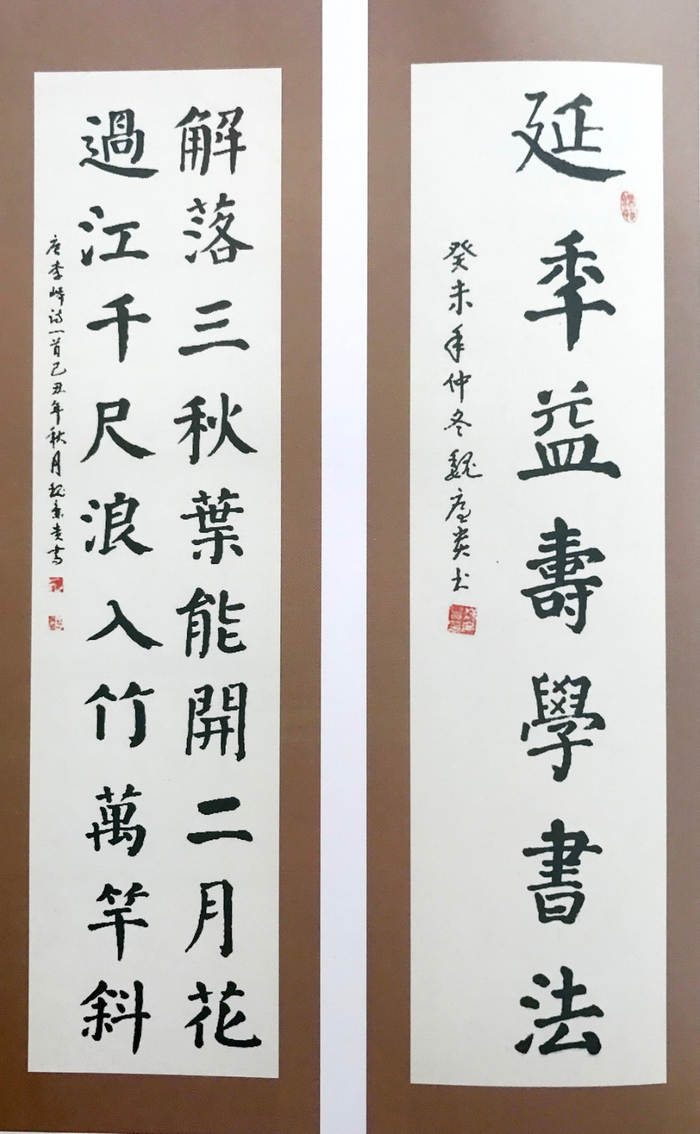 延秊益壽學書法
癸未年仲冬魏贵书
解落三秋葉能開二月花
過江千尺浪入竹萬竿斜
唐李峤诗一首己丑年秋月魏贵書